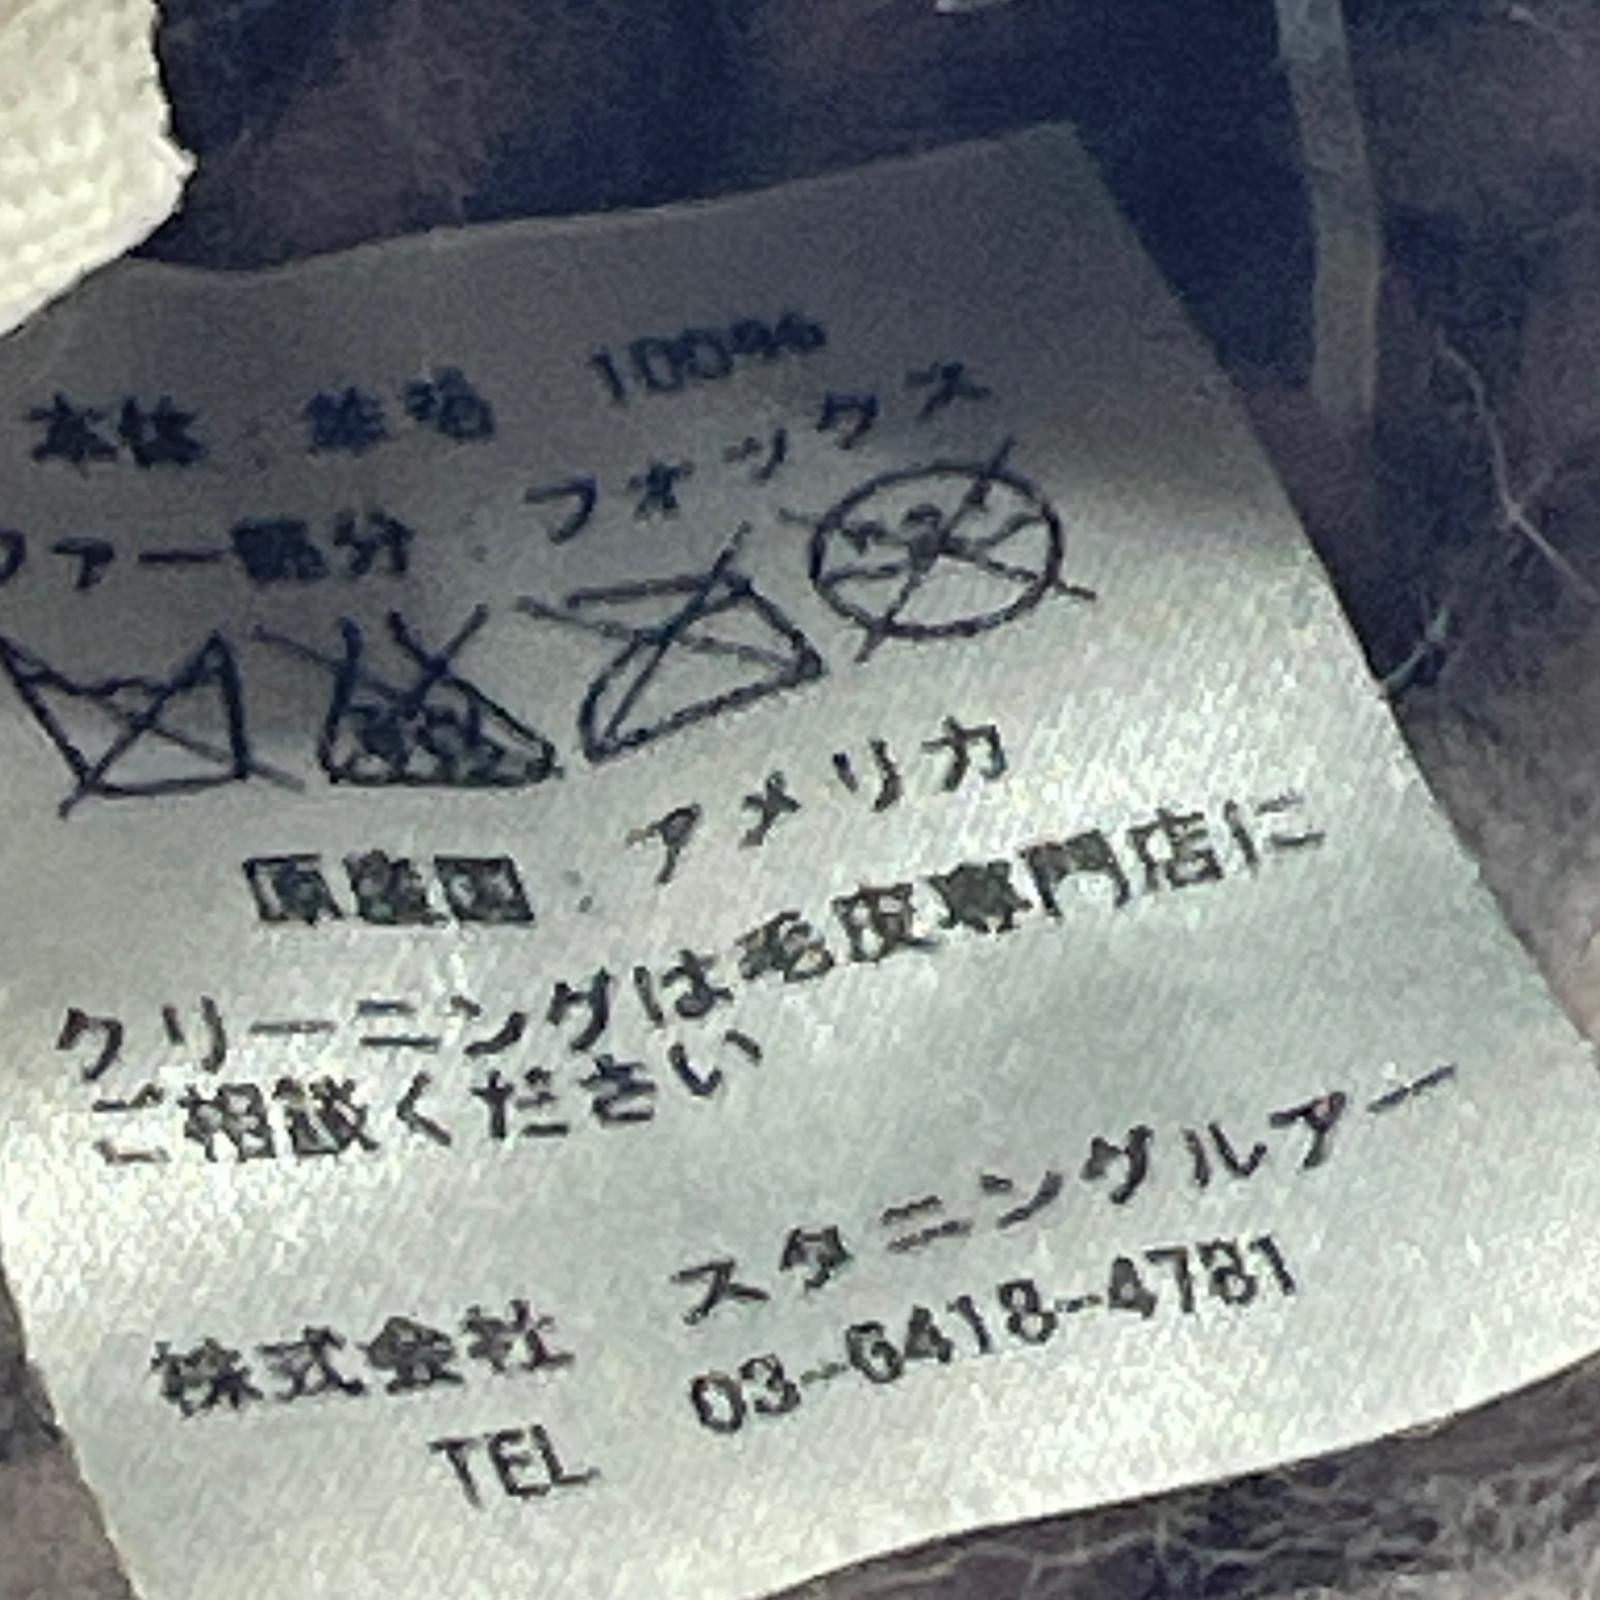 本体 : 100%
ファー部分 : フォックス
原産国 : アメリカ
クリーニングは毛皮専門店に
ご相談ください
株式会社 スタニングルアー
TEL 03-6418-4781